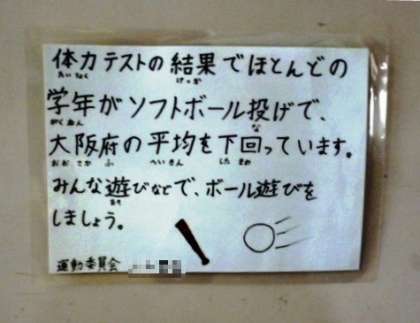 体力テストの結果でほとんどの
たいりょく けっか
学年がソフトボール投げで、
がくねん な
大阪府の平均を下回っています。
おおさか ふ へいきん したまわ
みんな遊びなどで、ボール遊びを
あそ
しましょう。
運動委員会